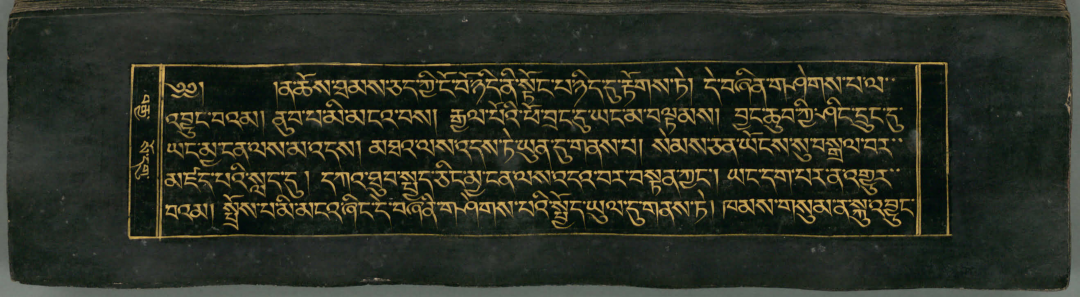 ༄༅། །ན་ཆོས་ཐམས་ཅད་ཀྱི་ངོ་བོ་ཉིད་ནི་སྟོང་པ་ཉིད་དུ་རྟོགས་ཏེ། དེ་བཞིན་གཤེགས་པ་ལ་
འབྱུང་བའམ། ནུབ་པ་མི་མངའ་བས། རྒྱལ་པོའི་ཕོ་བྲང་དུ་ཡང་མ་བལྟམས། བྱང་ཆུབ་ཀྱི་ཤིང་དྲུང་དུ་
ཡང་མྱ་ངན་ལས་མ་འདས། མཐའ་ལས་འདས་ཏེ་ཡུན་དུ་གནས་པ། སེམས་ཅན་ཡོངས་སུ་བསྒྲལ་བར་
མཛད་པའི་སླད་དུ། དཀའ་ཐུབ་སྤྱད་ཅིང་མྱ་ངན་ལས་འདའ་བར་བསྟན་ཀྱང་། ཡང་དག་པར་ན་འགྱུར་
བའམ། སྤྲོས་པ་མི་མངའ་ཞིང་དེ་བཞིན་གཤེགས་པའི་སྤྱོད་ཡུལ་དུ་གནས་ཏེ། ཁམས་གསུམ་ན་སྐུ་འབྱུང་